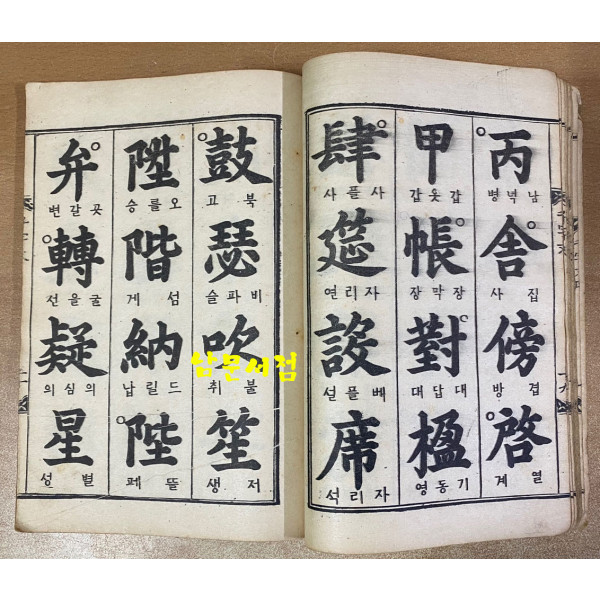 丙
남녁병
舍
집사
傍
겹방
啓
열계
甲
갑옷갑
帳
장막장
對
대답대
楹
기동영
肆
사플사
筵
자리연
設
베플설
席
자리석
鼓
북고
瑟
비파슬
吹
불취
笙
저생
陞
오를승
階
섬게
納
드릴납
陛
뜰폐
弁
곳갈변
轉
굴을선
疑
의심의
星
별성
남문서점